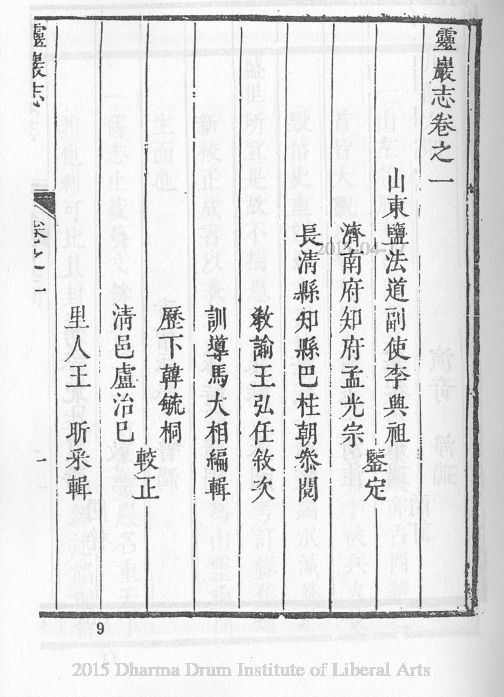 靈巖志卷之一
山東鹽法道副使李興祖
濟南府知府孟光宗
鑒定
長清縣知縣巴柱朝叅閱
敎諭王弘任敘次
訓導馬大相編輯
歷下韓毓桐
清邑盧治巳
較正
里人王昕采輯
靈巖志
卷之一
一
9
2015 Dharma Drum Institute of Liberal Arts